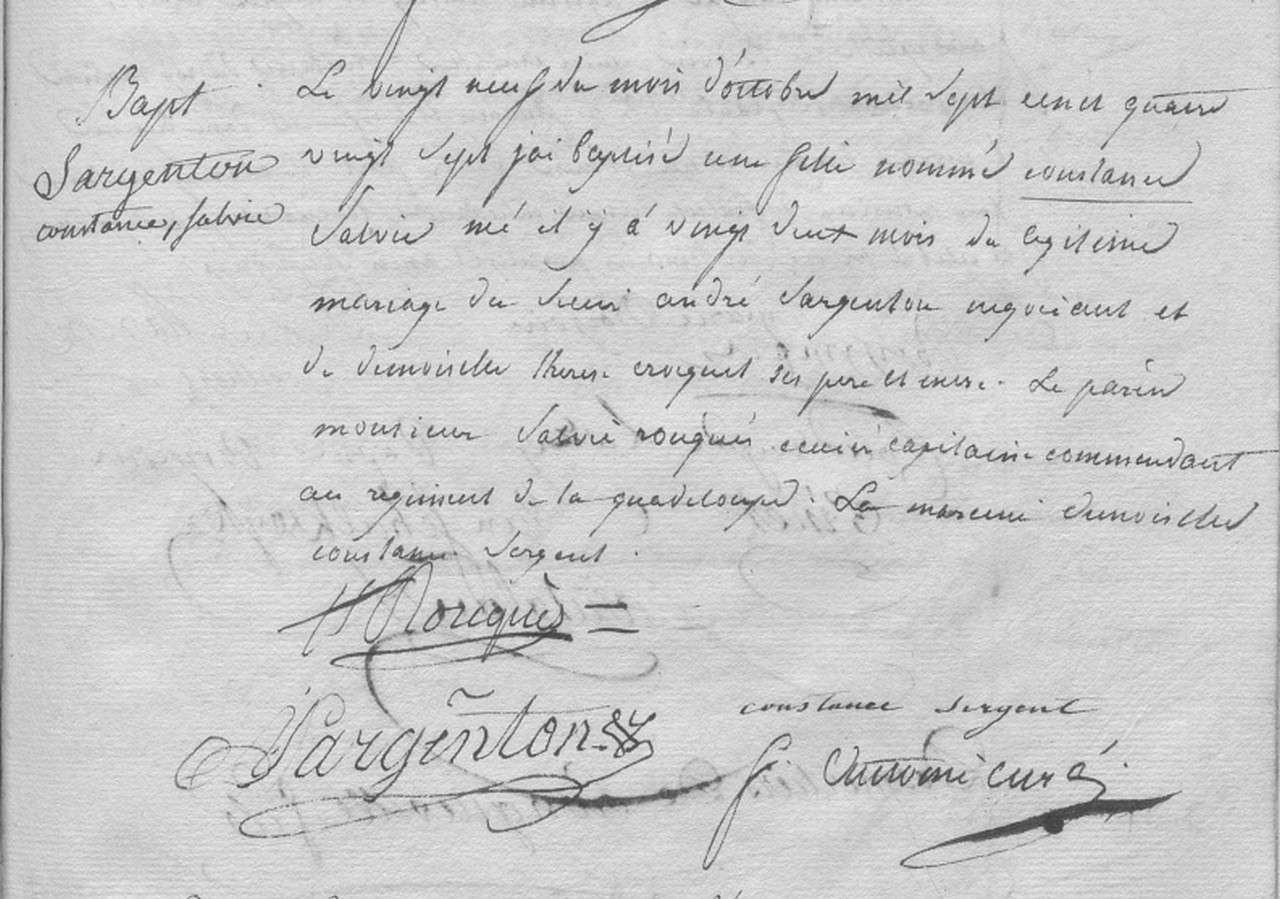 Bapt
Sargenton
constance, salvie
Le vingt neuf du mois d'octobre mil sept cent quatre
vingt sept j'ai baptisé une fille nommé constance
Salvie né il y á vingt deux mois du legitime
mariage du sieur andré Sargenton negociant et
de demoiselle therese croquet ses pere et mere. Le parin
monsieur Salvié rouquès ecuier capitaine commendant
au regiment de la guadeloupe La mareine demoiselle
constance Sergent.
Rouquès
Sargenton
constance sergent
f. Antoine curé.